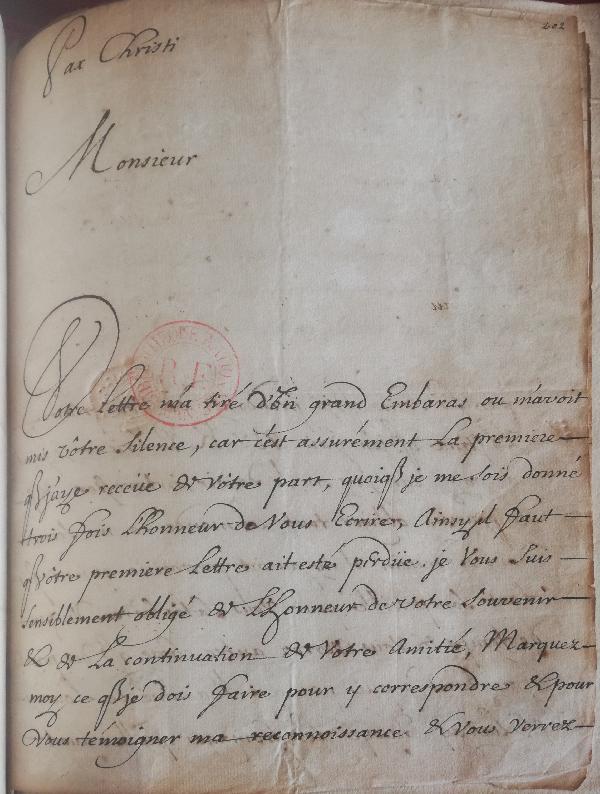 202
Pax Christi
Monsieur
Votre Lettre m'a tiré d'un grand Embaras ou m'avoit
mis vôtre silence, car c'est assurément La premiere
qβ j'aye receüe de Vôtre part, quoiqβ je me sois donné
trois fois L'honneur de Vous Ecrire, Ainsy il faut
qβ vôtre premiere Lettre ait esté perdüe. je Vous suis
sensiblement obligé de L'honneur de votre souvenir
& de La continuation de Votre Amitié, Marquez-
moy ce qβ je dois faire pour y correspondre & pour
Vous témoigner ma reconnoissance & Vous verrez